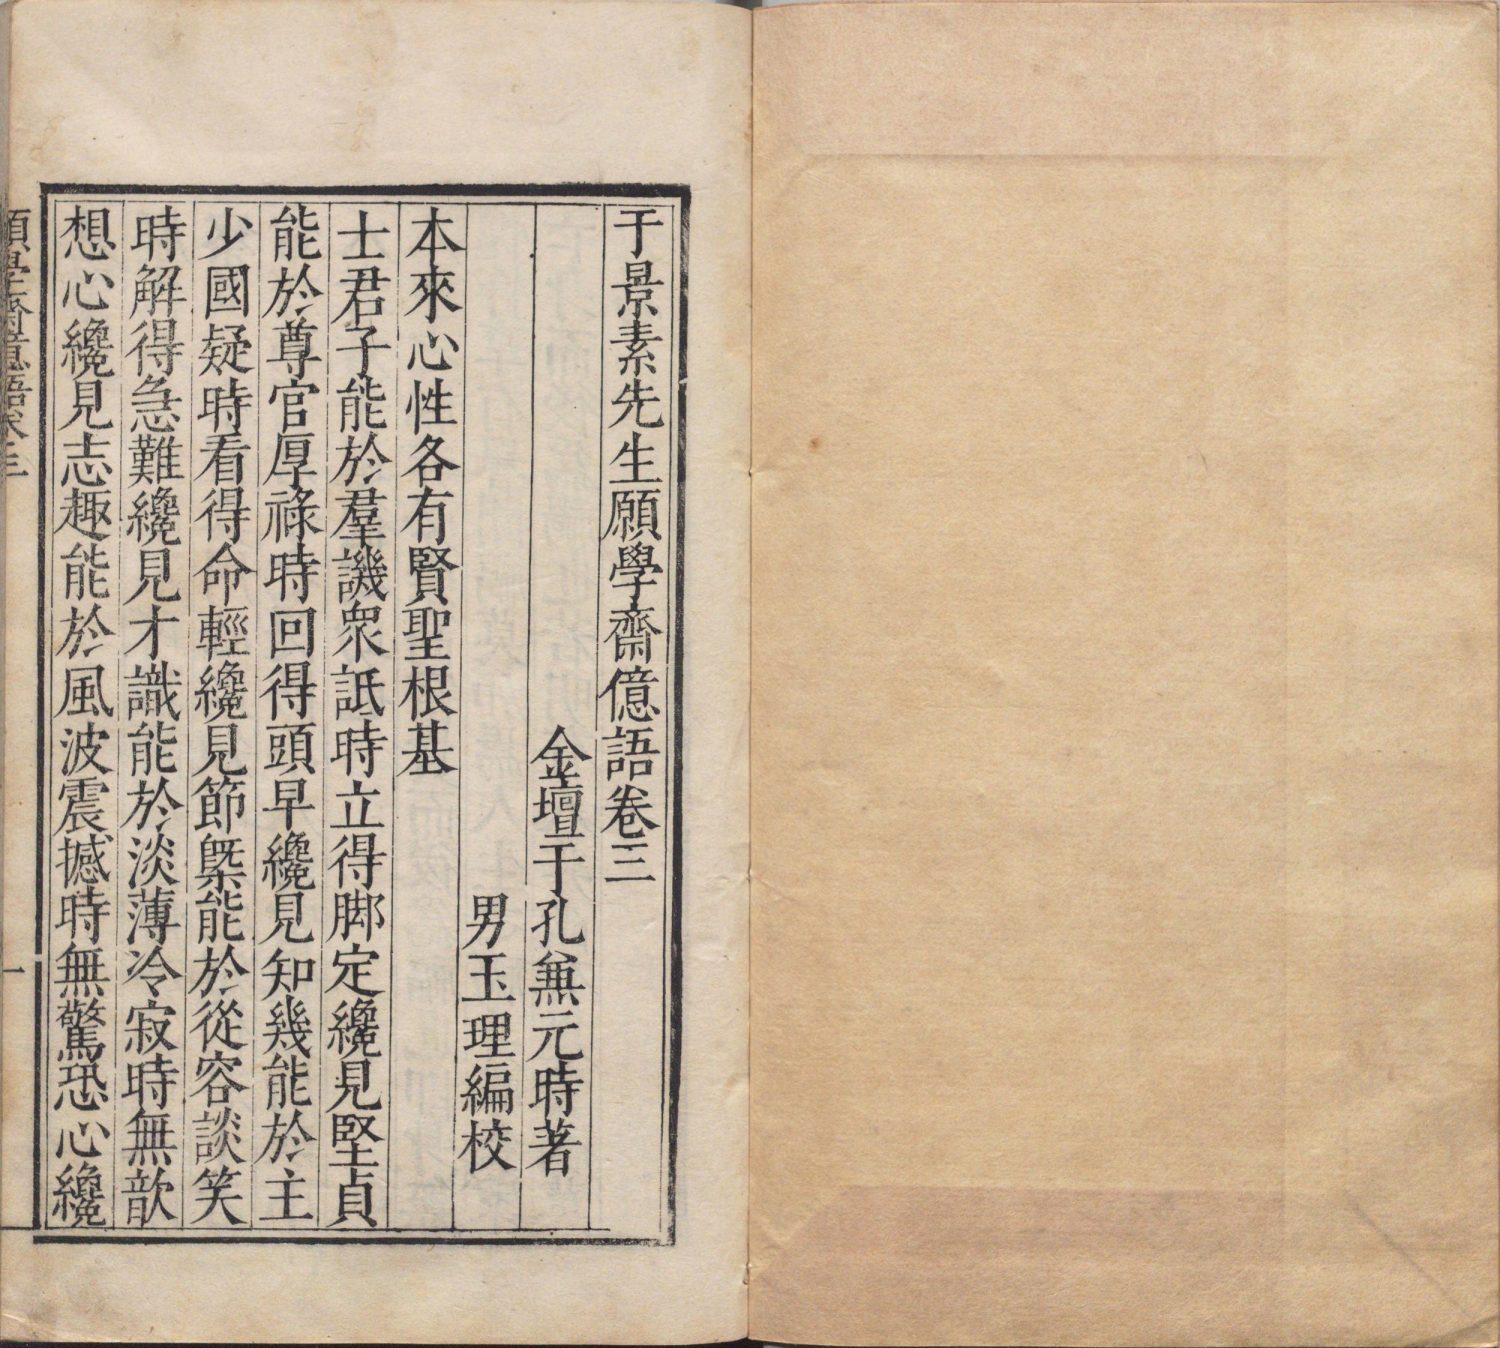 于景素先生願學齋億語卷三
金壇于孔兼元時著
男玉理編校
本來心性各有賢聖根基
士君子能於羣譏衆詆時立得脚定纔見堅貞
能於尊官厚祿時回得頭早纔見知幾能於主
少國疑時看得命輕纔見節槩能於從容談笑
時解得急難纔見才識能於淡薄冷寂時無歆
想心纔見志趣能於風波震撼時無驚恐心纔
願學齋億語卷三
一